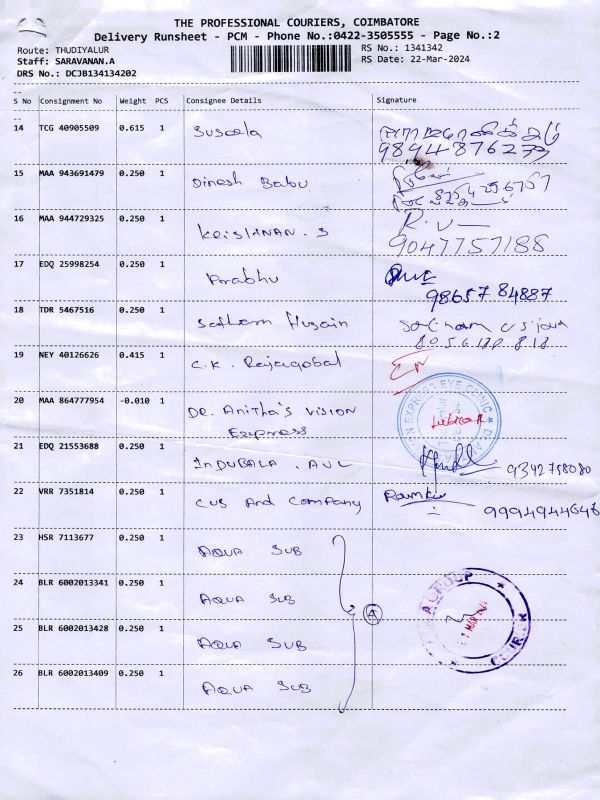 THE PROFESSIONAL COURIERS, COIMBATORE
Delivery Runsheet - PCM - Phone No.:0422-3505555 - Page No.:2
Route: THUDIYALUR
RS No.: 1341342
Staff: SARAVANAN.A
RS Date: 22-Mar-2024
DRS No.: DCJB134134202
S No Consignment No Weight PCS Consignee Details Signature
14 TCG 40905509 0.615 1 Suseela
9894876273
15 MAA 943691479 0.250 1 Dinesh Babu
16 MAA 944729325 0.250 1 KRISHNAN. S R. V
9047757188
17 EDQ 25998254 0.250 1 Prabhu
98657 84887
18 TDR 5467516 0.250 1 Satham Husain
19 NEY 40126626 0.415 1 C.K. Rajagobal
20 MAA 864777954 -0.010 1 DR. Anitha's Vision
Express
EXPRESS EYE CLINIC
21 EDQ 21553688 0.250 1 INDUBALA. AVL 9342758080
22 VRR 7351814 0.250 1 CUB And Company Ramku
9994944646
23 HSR 7113677 0.250 1 AQUA SUB
24 BLR 6002013341 0.250 1 AQUA SUB
A
25 BLR 6002013428 0.250 1 AQUA SUB
26 BLR 6002013409 0.250 1 AQUA SUB